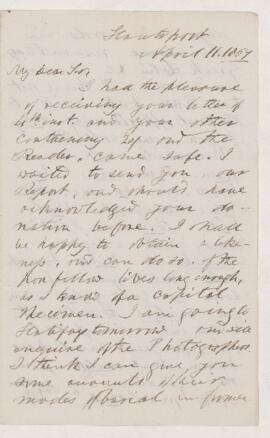 Hantsport
April 11. 1867
My dear Sir,
I had the pleasure
of receiving your letter of
4th inst. and your other
containing 2$ and the
Reader, came safe. I
waited to send you our
Report, and should have
acknowledged your do-
nation before. I shall
be happy to obtain a like-
ness, and can do so if the
poor fellow lives long enough,
as I know of a capital
specimen. I am going to
Halifax tomorrow and will
enquire of the Photographers.
I think I can give you
some accounts of their
modes of burial in former